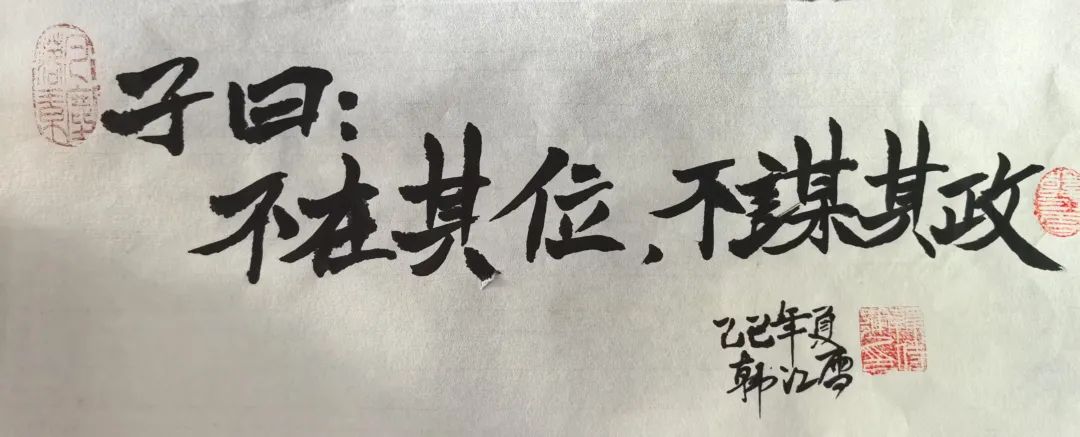 子曰：
不在其位，不謀其政
乙巳年夏
韩江雪